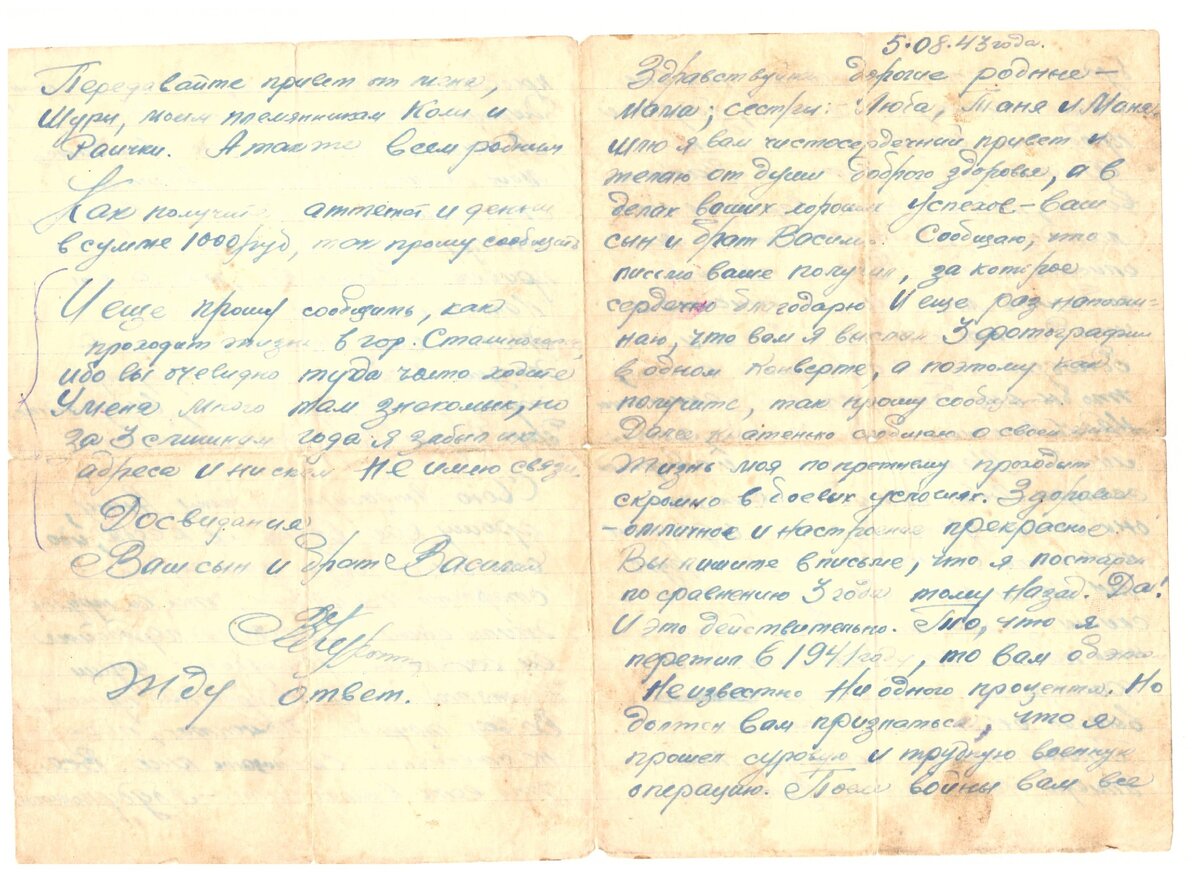 5.08.43 года.
Здравствуйте дорогие родные —
мама; сестры: Люба, Таня и Маня
шлю я вам чистосердечный привет и
желаю от души доброго здоровья, а в
делах ваших хороших успехов — ваш
сын и брат Василий. Сообщаю, что
письмо ваше получил, за которое
сердечно благодарю И еще раз напоми-
наю, что вам я выслал 3 фотографии
в одном конверте, а поэтому как
получите, так прошу сообщить
Далее кратенько сообщаю о своей
Жизнь моя по прежнему проходит
скромно в боевых успехах. Здоровье
— отличное и настроение прекрасное.
Вы пишите в письме, что я постарел
по сравнению 3 года тому назад. Да!
И это действительно. То, что я
пережил в 1941 году, то вам об это
Неизвестно Ни одного процента. Но
должен вам признаться, что я
прошел суровую и трудную военную
операцию. После войны вам все
Передавайте привет от меня,
Шуры, моим племянникам Коли и
Раички. А также всем родным
Как получите аттестат и деньги
в сумме 1000 руб, так прошу сообщить
И еще прошу сообщить, как
проходит жизнь в гор. Сталиногорск,
ибо вы очевидно туда часто ходите
У меня много там знакомых, но
за 3 слишним года я забыл их
адреса и ни скем не имею связи.
Досвидания
Ваш сын и брат Василий
Жду ответ.